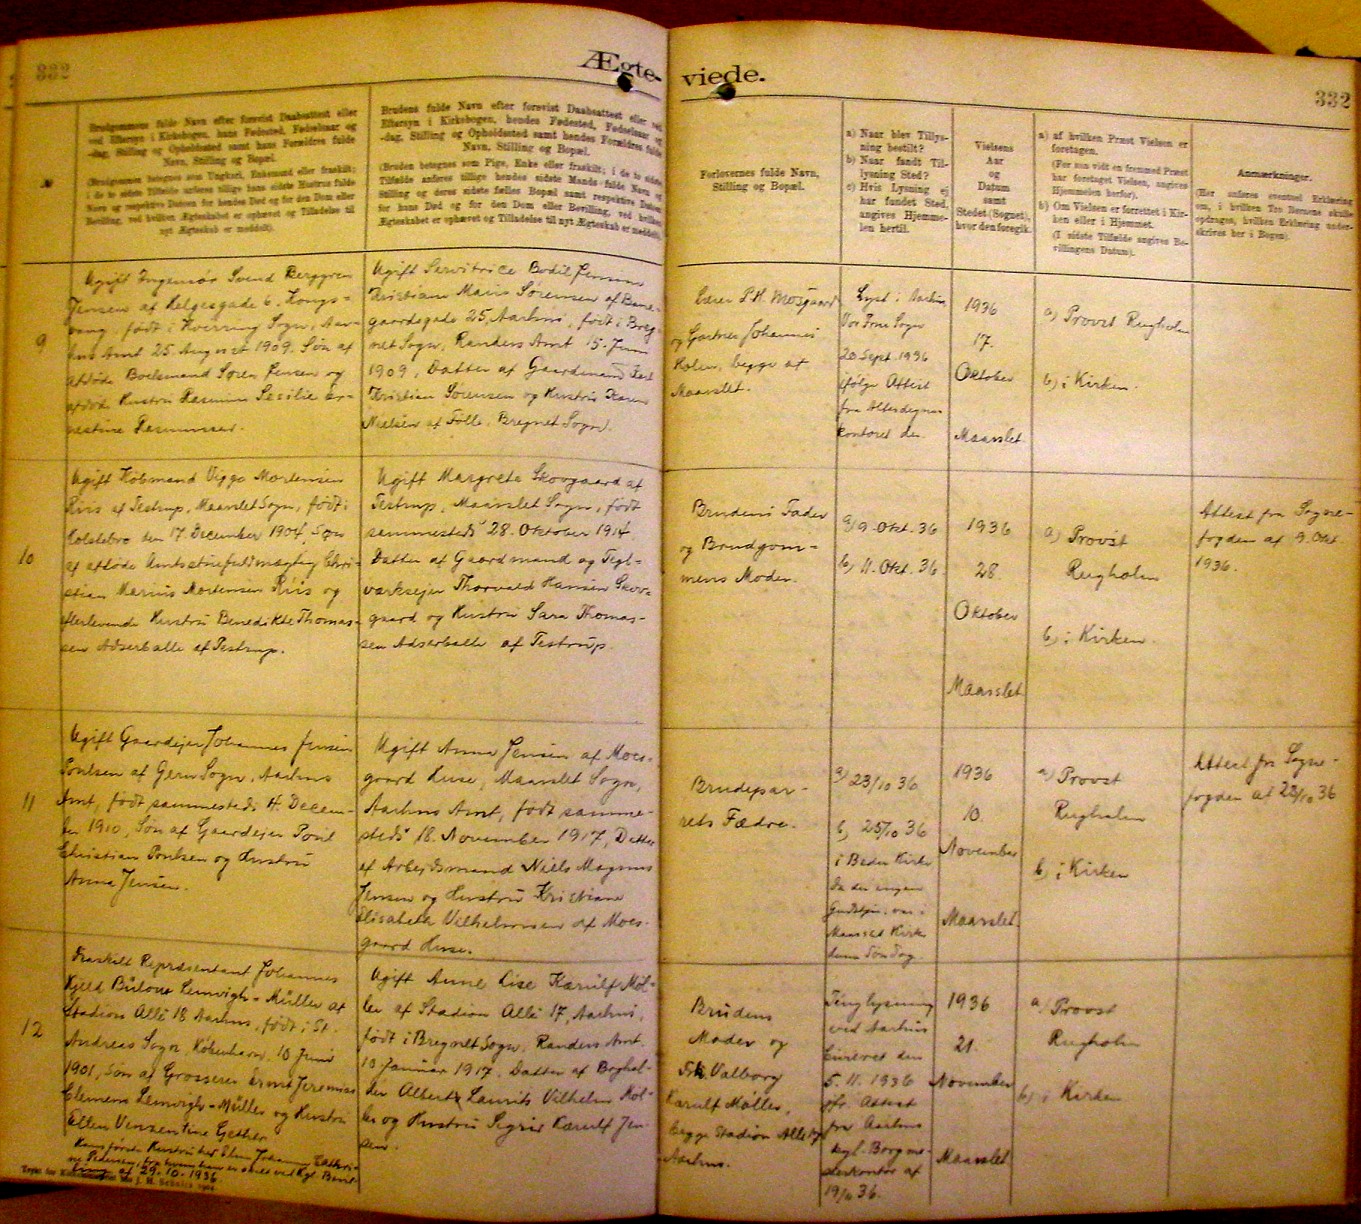 332
Ægte-
viede.
332
Brudgommens fulde Navn efter forevist Daabsattest eller
ved Eftersyn i Kirkebogen, hans Fødested, Fødselsaar og
-dag, Stilling og Opholdssted samt hans Forældres fulde
Navn, Stilling og Bopæl.
(Brudgommen betegnes som Ungkarl, Enkemand eller fraskilt;
i de to sidste Tilfælde anføres tillige hans sidste Hustrus fulde
Navn og respektive Datoen for hendes Død og for den Dom eller
Bevilling, ved hvilken Ægteskabet er ophævet og Tilladelse til
nyt Ægteskab er meddelt).
Brudens fulde Navn efter forevist Daabsattest eller ved
Eftersyn i Kirkebogen, hendes Fødested, Fødselsaar og
-dag, Stilling og Opholdssted samt hendes Forældres fulde
Navn, Stilling og Bopæl.
(Bruden betegnes som Pige, Enke eller fraskilt; i de to sidste
Tilfælde anføres tillige hendes sidste Mands fulde Navn og
Stilling og deres sidste fælles Bopæl samt respektive Datoen
for hans Død og for den Dom eller Bevilling, ved hvilken
Ægteskabet er ophævet og Tilladelse til nyt Ægteskab er meddelt).
Forlovernes fulde Navn,
Stilling og Bopæl.
a) Naar blev Tillys-
ning bestilt?
b) Naar fandt Til-
lysning Sted?
c) Hvis Lysning ej
har fundet Sted,
angives Hjemme-
len hertil.
Vielsens
Aar
og
Datum
samt
Stedet (Sognet),
hvor den foregik.
a) af hvilken Præst Vielsen er
foretagen.
(For saa vidt en fremmed Præst
har foretaget Vielsen, angives
Hjemmelen herfor).
b) Om Vielsen er forrettet i Kir-
ken eller i Hjemmet.
(I sidste Tilfælde angives Be-
villingens Datum).
Anmærkninger.
(Her anføres eventuel Erklæring
om, i hvilken Tro Børnene skulle
opdrages, hvilken Erklæring under-
skrives her i Bogen).
9
Ugift Ingeniør Svend Berggren
Jensen af Helgesgade 6. Kongs-
vang, født i Sogn, Aar-
hus Amt 25. August 1909. Søn af
afdøde Boelsmand Søren Jensen og
afdøde Hustru Rasmine Cecilie Er-
nestine Rasmussen.
Ugift Servitrice Bodil Jensine
Kristiane Marie Sørensen af Bane-
gaardsgade 25, Aarhus, født i Breg-
net Sogn, Randers Amt 15. Juni
1909, Datter af Gaardmand Karl
Kristian Sørensen og Hustru Karen
Nielsen af Følle, Bregnet Sogn.
Lærer P. H. Mosgaard
og Gartner Johannes
Holm, begge af
Maarslet.
Lyst i Aarhus
Vor Frue Sogn
20 Sept. 1936
ifølge Attest
fra Alterdegne-
kontoret der.
1936
17.
Oktober
Maarslet
a) Provst Rugholm
b) i Kirken.
10
Ugift Købmand Viggo Mortensen
Riis af Testrup, Maarslet Sogn, født i
Holstebro den 17. December 1904, Søn
af afdøde Amtsstuefuldmægtig Chri-
stian Marius Mortensen Riis og
efterlevende Hustru Benedikte Thomas-
sen Adserballe af Testrup.
Ugift Margrete Skovgaard af
Testrup, Maarslet Sogn, født
sammesteds 28. Oktober 1914.
Datter af Gaardmand og Tegl-
værksejer Thorvald Hansen Skov-
gaard og Hustru Sara Thomas-
sen Adserballe af Testrup.
Brudens Fader
og Brudgom-
mens Moder.
a) 9. Okt. 36
b) 11. Okt. 36
1936
28.
Oktober
Maarslet
a) Provst
Rugholm
b) i Kirken.
Attest fra Sogne-
fogden af 9. Okt.
1936.
11
Ugift Gaardejer Johannes Jensen
Poulsen af Gern Sogn, Aarhus
Amt, født sammesteds 4. Decem-
ber 1910, Søn af Gaardejer Poul
Christian Poulsen og Hustru
Anna Jensen.
Ugift Anna Jensen af Moes-
gaard Huse, Maarslet Sogn,
Aarhus Amt, født samme-
steds 18. November 1917, Datter
af Arbejdsmand Niels Magnus
Jensen og Hustru Kristiane
Elisabeth Vilhelmsen af Moes-
gaard Huse.
Brudepar-
rets Fædre.
a) 23/10 36
b) 25/10 36
i Beder Kirke
da der ingen
Gudstjen. var i
Maarslet Kirke
denne Søndag.
1936
10.
November
Maarslet.
a) Provst
Rugholm
b) i Kirken
Attest fra Sogne-
fogden af 23/10 36
12
Fraskilt Repræsentant Johannes
Kjeld Bülow Lemvigh-Müller af
Stadion Allé 18 Aarhus, født i St.
Andreas Sogn, København, 10 Juni
1901, Søn af Grosserer Ernst Jeremias
Clemens Lemvigh-Müller og Hustru
Ellen Vincentine Gether
Hans første Hustru hed Elna Johanne Cathri-
ne Pedersen, fra hvem han er skilt ved Kgl. Bevil-
ling af 29-10-1936.
Ugift Anne Lise Kærulf Møl-
ler af Stadion Allé 17, Aarhus,
født i Bregnet Sogn, Randers Amt.
13 Januar 1917. Datter af Boghol-
der Albert Laurits Vilhelm Møl-
ler og Hustru Sigrid Kærulf Jen-
sen.
Brudens
Moder og
Frk. Valborg
Kærulf Møller,
begge Stadion Allé 17
Aarhus.
Tinglysning
ved Aarhus
den
5. 11. 1936
jfr. Attest
fra Aarhus
kgl. Borgme-
sterkontor af
19/11 36.
1936
21.
November
Maarslet
a) Provst
Rugholm
b) i Kirken